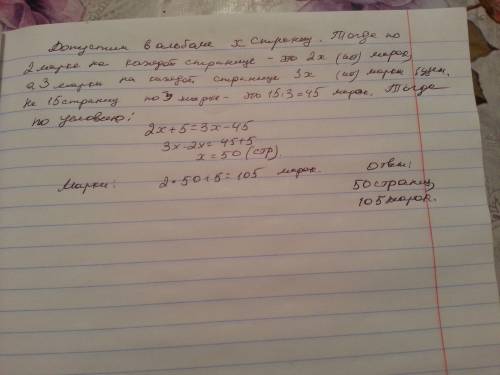 Допустим в альбоме x страниц. Тогда по
2 марке на каждой странице - это 2x (ио) марок,
а 3 марки на каждой странице 3x (ио) марок будет.
На 15 страниц по 3 марке - это 15·3=45 марок. Тогда
по условию:
2x+5=3x-45
3x-2x=45+5
x=50 (стр).
Марки: 2·50+5=105 марок.
Ответ:
50 страниц
105 марок.